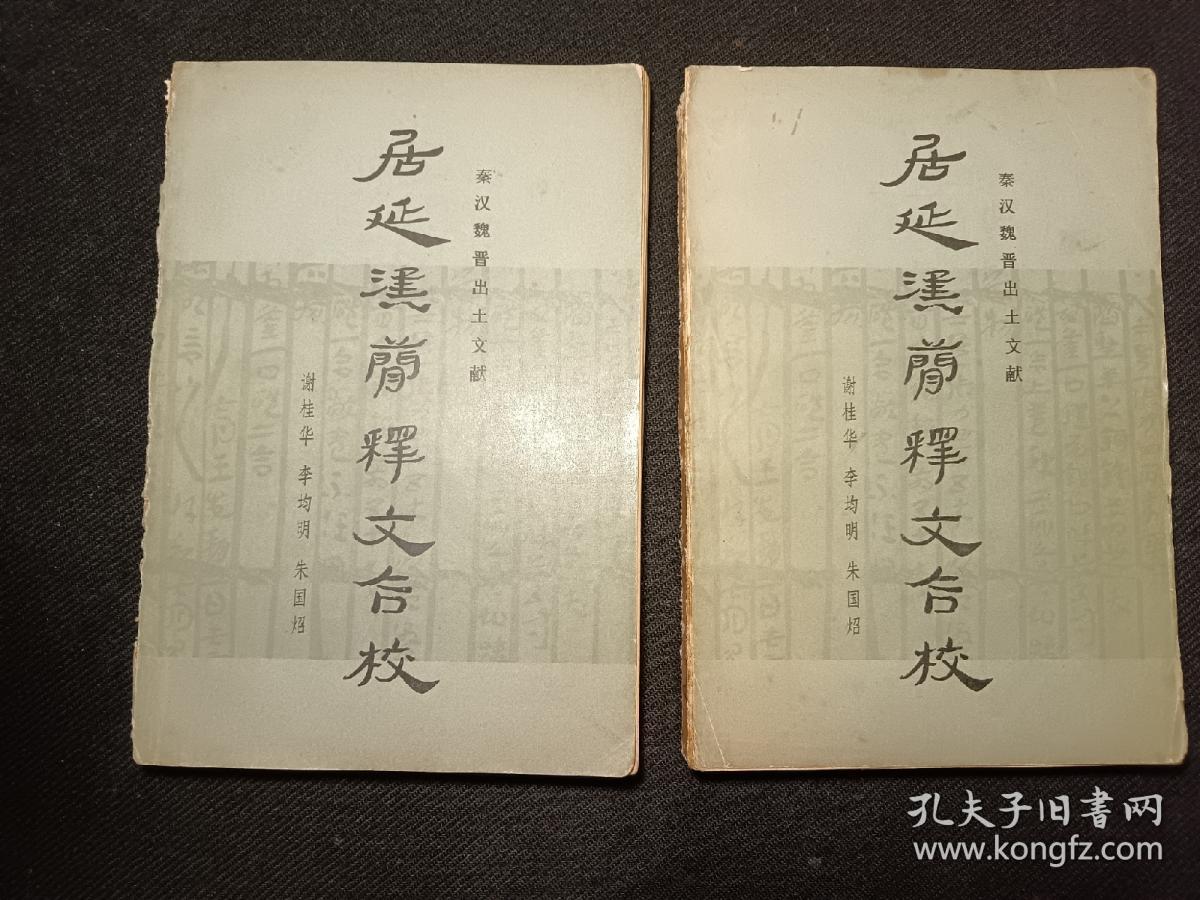 秦汉魏晋出土文献
居延漢簡釋文合校
谢桂华 李均明 朱国炤
秦汉魏晋出土文献
居延漢簡釋文合校
谢桂华 李均明 朱国炤
孔夫子旧书网
www.kongfz.com